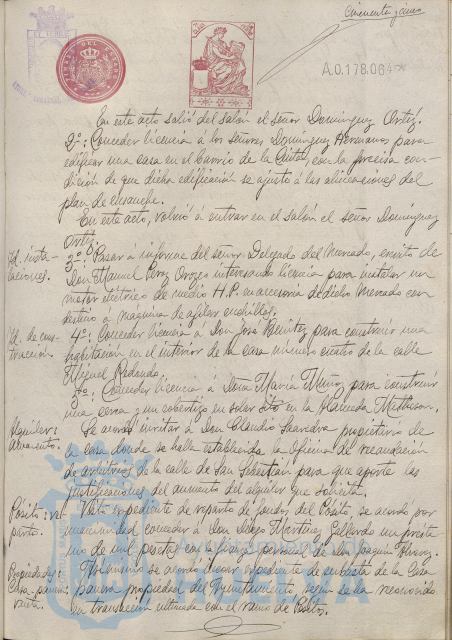 Cincuenta y cinco
A.0.178.064
En este acto salió del salón el señor Domínguez Ortiz.
2º: Conceder licencia á los señores Domínguez Hermanos para
edificar una casa en el barrio de la con la precisa con-
dición de que dicha edificación se ajuste á las alineaciones del
plan de ensanche.
En este acto, volvió á entrar en el salón el señor Domínguez
Ortiz.
Id. insta-
laciones.
3º: Pasar á informe del señor Delegado del Mercado, escrito de
Don Manuel Orozco interesando licencia para instalar un
motor eléctrico de medio H.P. en accesoria de dicho Mercado con
destino á maquina de afilar cuchillos.
Id. de cons-
trucción.
4º: Conceder licencia á Don José Benítez para construir una
habitación en el interior de la casa número cuatro de la calle
Miguel Redondo.
Conceder licencia á Doña María Muñoz para construir
una cerca y un cobertizo en solar sito en la Alameda
Alquiler:
Se acordó invitar á Don Claudio Saavedra propietario de
la casa donde se halla establecida la Oficina de recaudación
de arbitrios de la calle de San Sebastián para que aporte las
justificaciones del aumento del alquiler que solicita.
Pósito: re-
parto.
Visto expediente de reparto de fondos del Pósito, se acordó por
unanimidad conceder á Don Diego Martínez Gallardo un présta
mo de mil pesetas con la fianza personal de don Joaquín
Propiedades:
Casa pana-
dera
se acordó incoar expediente de subasta de la Casa
panera propiedad del Ayuntamiento según se ha reconocido
en transacción ultimada con el ramo de Pósitos.